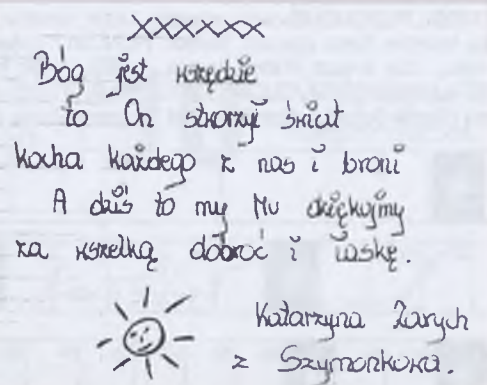 XXXXXXX
Bóg jest wszędzie
to On stworzył świat
Kocha każdego z nas i broni
A dziś to my Mu dziękujmy
za wszelką dobroć i łaskę.
Katarzyna Żarych
z Szymonkowa.